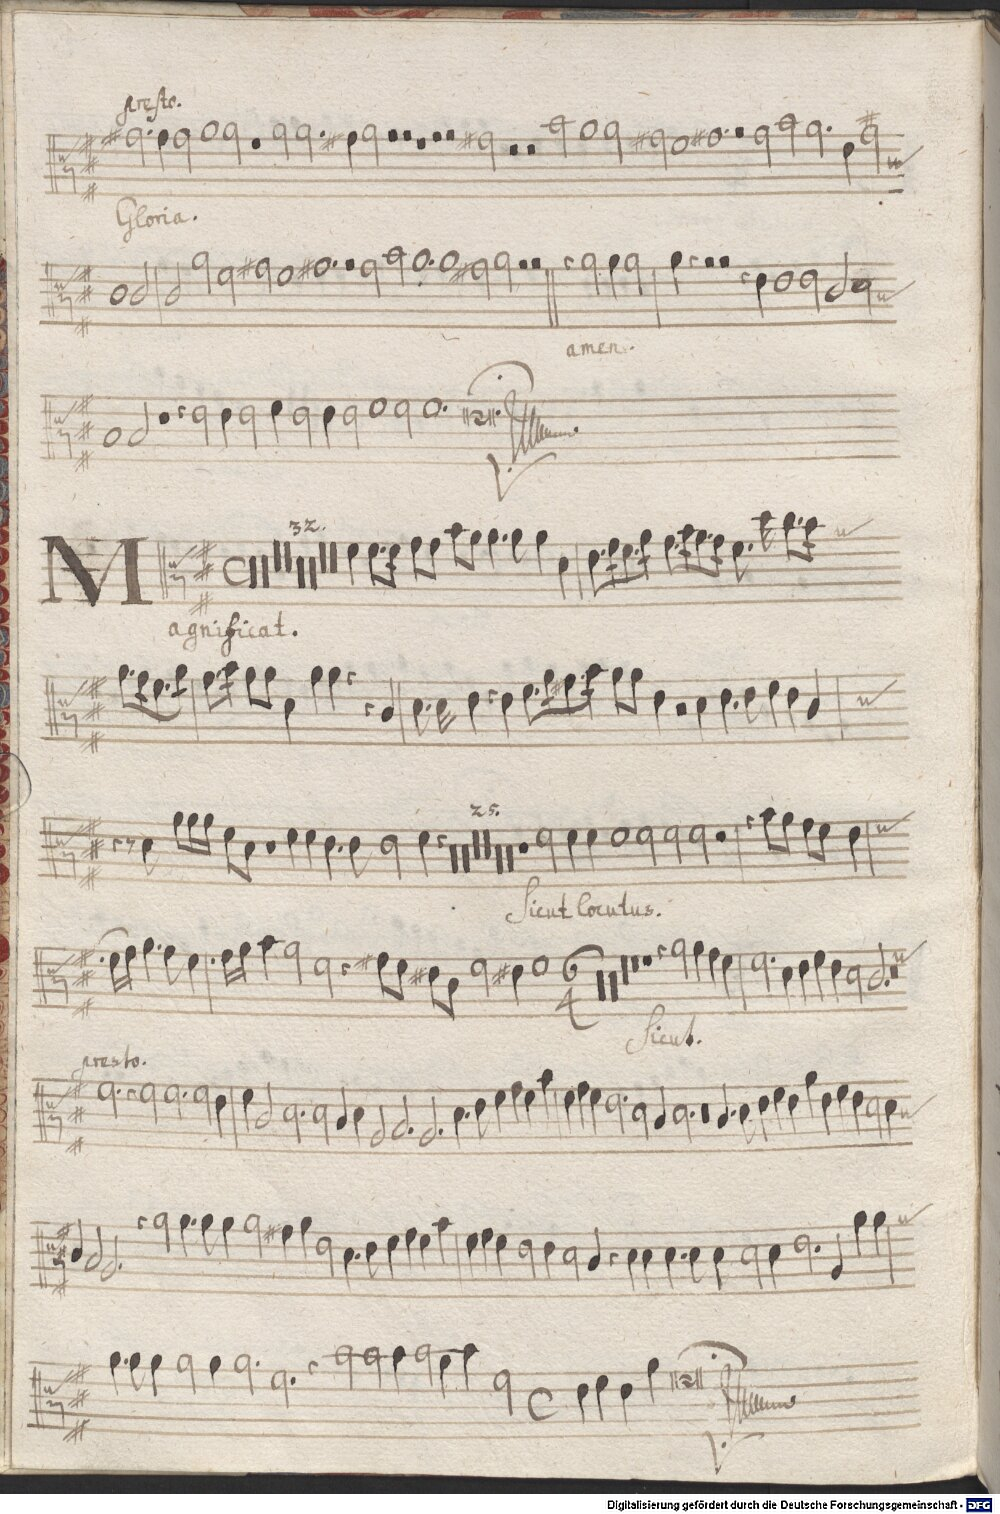 presto.
Gloria.
amen.
32.
Magnificat.
25.
Sicut locutus.
6
4
Sicut.
presto.
Digitalisierung gefördert durch die Deutsche Forschungsgemeinschaft - DFG